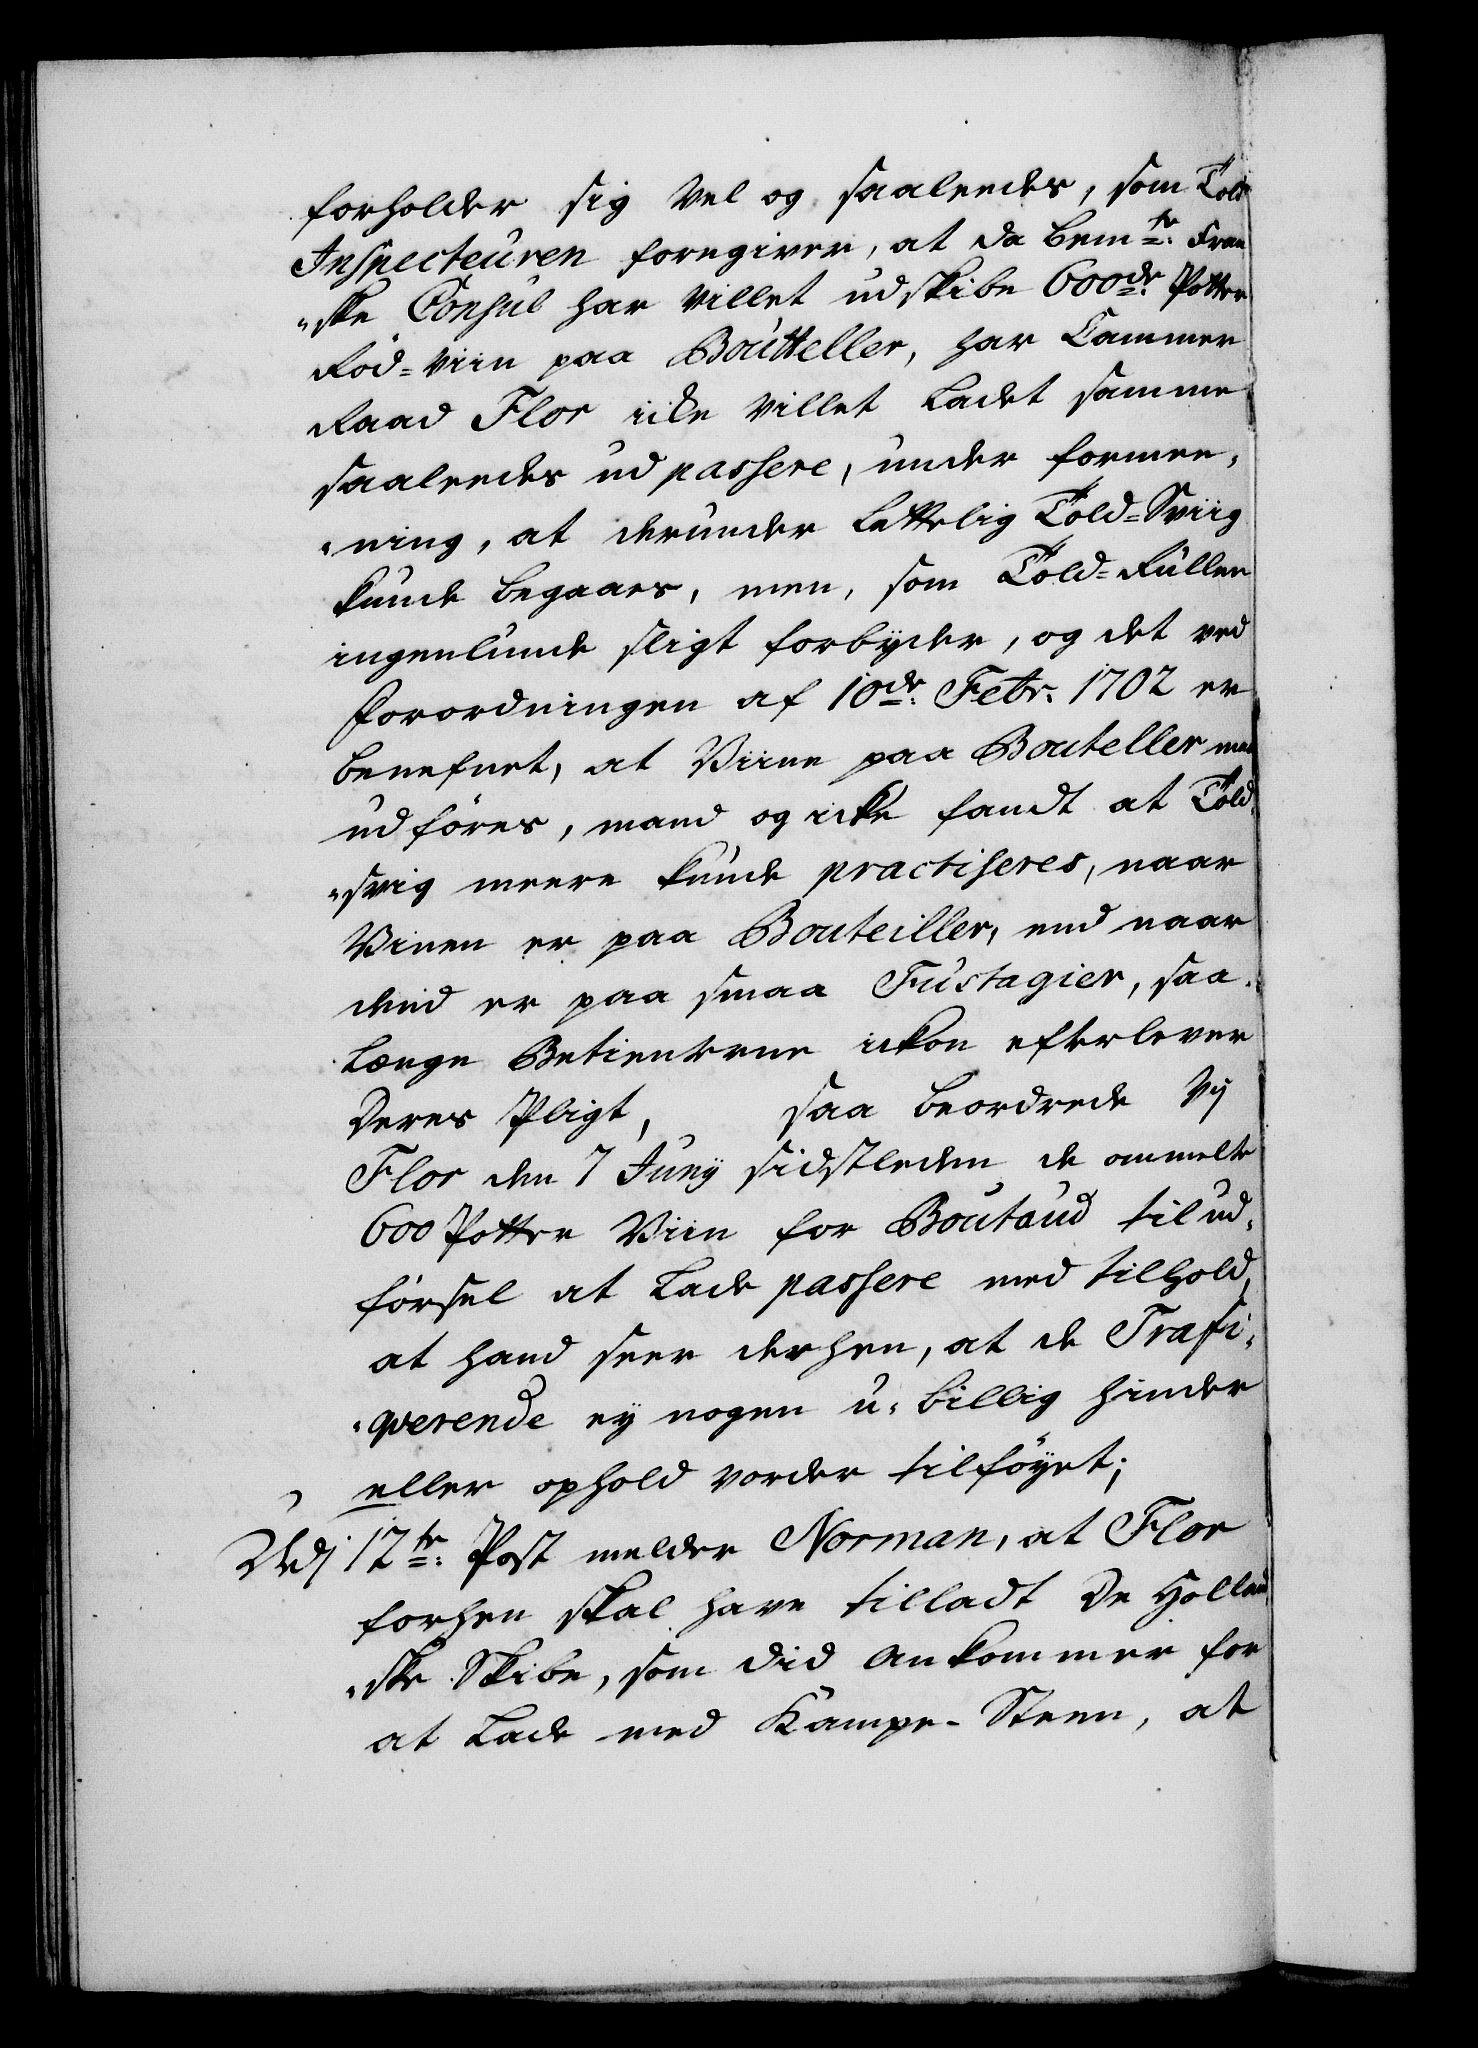 forholder sig vel og saaleedes, som Told
Inspecteuren foregiver, at da bemte. Fran
"ske Consul har villet udskibe 600de. Potter
Röd=Viin paa Boutteller, har Cammer
Raad Flor icke villet ladet samme
saaleedes ud passere, under formee,
"ning, at derunder lættelig Told=Sviig
kunde begaaes, men, som Told=Rullen
ingenlunde sligt forbyder, og det ved
Forordningen af 10de. Febr. 1702 er
benefnet, at Viine paa Bouteller maa
udföres, mand og icke fandt at Told
"svig meere kunde practiseres, naar
Vinen er paa Bouteiller, end naar
dend er paa smaa Fustagier, saa
længe Betienterne ickon efterlever
Deres Pligt, saa beordrede Vy
Flor den 7 Juny sidstleden de ommelte
600 Potter Viin for Boutaud til ud,
försel at lade passere med tilhold,
at hand seer derhen, at de Trafi,
"qverende ey nogen u, billig hinder
eller ophold vorder tilföyet;
Ved 12te. Post melder Norman, at Flor
forhen skal have tilladt De Hollan
"ske Skibe, som did ankommer for
at lade med Kampe-Steen, at